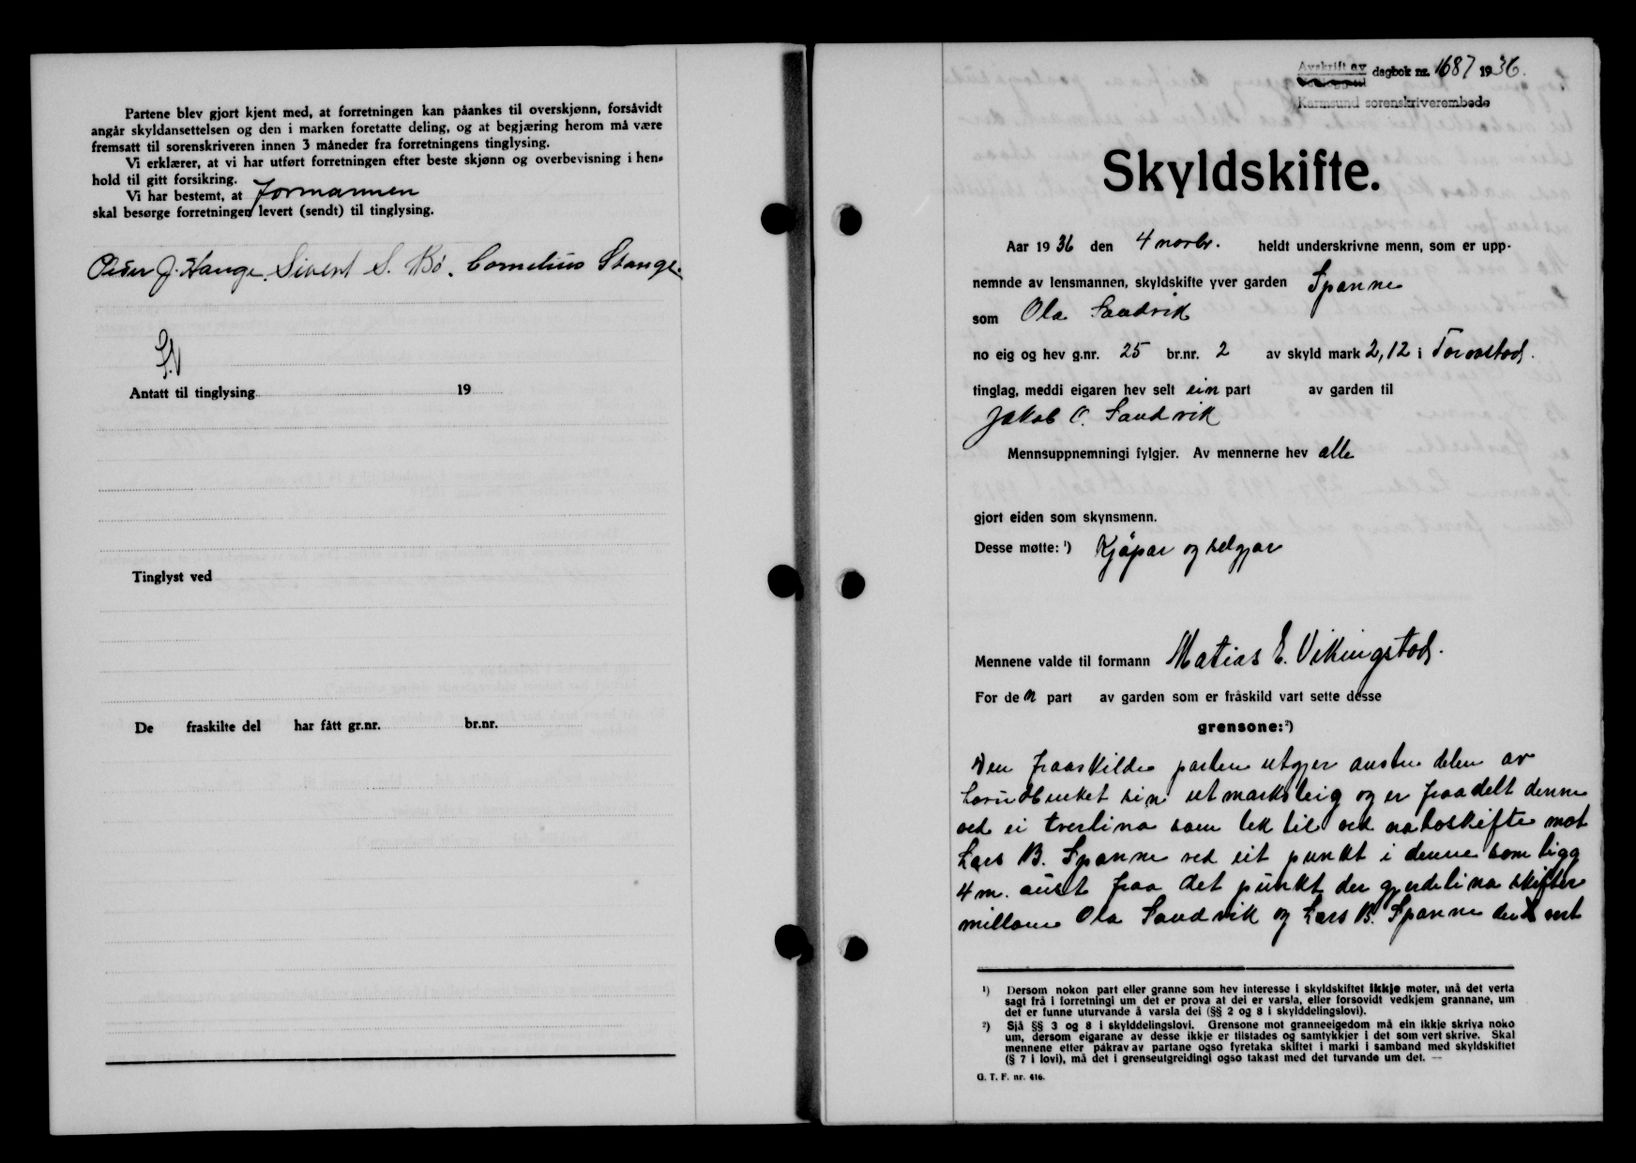 Partene blev gjort kjent med, at forretningen kan påankes til overskjønn, forsåvidt
angår skyldansettelsen og den i marken foretatte deling, og at begjæring herom må være
fremsatt til sorenskriveren innen 3 måneder fra forretningens tinglysing.
Vi erklærer, at vi har utført forretningen efter beste skjønn og overbevisning i hen-
hold til gitt forsikring.
Vi har bestemt, at formannen
skal besørge forretningen levert (sendt) til tinglysing.
Peder J. Hauge. Sivert S. Bø. Cornelius Stange.
Antatt til tinglysing 19
Tinglyst ved
De fraskilte del har fått gr.nr. br.nr.
Avskrift av dagbok nr. 1687 1936.
Karmsund sorenskriverembede
Skyldskifte.
Aar 1936 den 4 novbr. heldt underskrivne menn, som er upp-
nemnde av lensmannen, skyldskifte yver garden Spanne
som Ola Sandvik
no eig og hev g.nr. 25 br.nr. 2 av skyld mark 2,12 i Torvastad.
tinglag, meddi eigaren hev selt ein part av garden til
Jakob O. Sandvik
Mennsuppnemningi fylgjer. Av mennerne hev alle
gjort eiden som skynsmenn.
Desse møtte: ¹) Kjøpar og selgjar
Mennene valde til formann Matias E. Vikingstad.
For den part av garden som er fråskild vart sette desse
grensone: ²)
Den fraaskilde parten utgjer austre delen av
bruket sin utmarksteig og er fraadelt denne
ved ei tverlina som tek til ved naboskifte mot
Lars B. Spanne ved eit punkt i denne som ligg
4 m. aust fraa det punkt der gjerdelina skifter
millom Ola Sandvik og Lars B. Spanne der
¹) Dersom nokon part eller granne som hev interesse i skyldskiftet ikkje møter, må det verta
sagt frå i forretningi um det er prova at dei er varsla, eller forsovidt vedkjem grannane, um
det er funne uturvande å varsla dei (§§ 2 og 8 i skylddelingslovi).
²) Sjå §§ 3 og 8 i skylddelingslovi. Grensone mot granneeigedom må ein ikkje skriva noko
um, dersom eigarane av desse ikkje er tilstades og samtykkjer i det som vert skrive. Skal
mennene etter påkrav av partane ogso fyretaka skiftet i marki i samband med skyldskiftet
(§ 7 i lovi), må det i grenseutgreidingi ogso takast med det turvande um det. —
G. T. F. nr. 416.